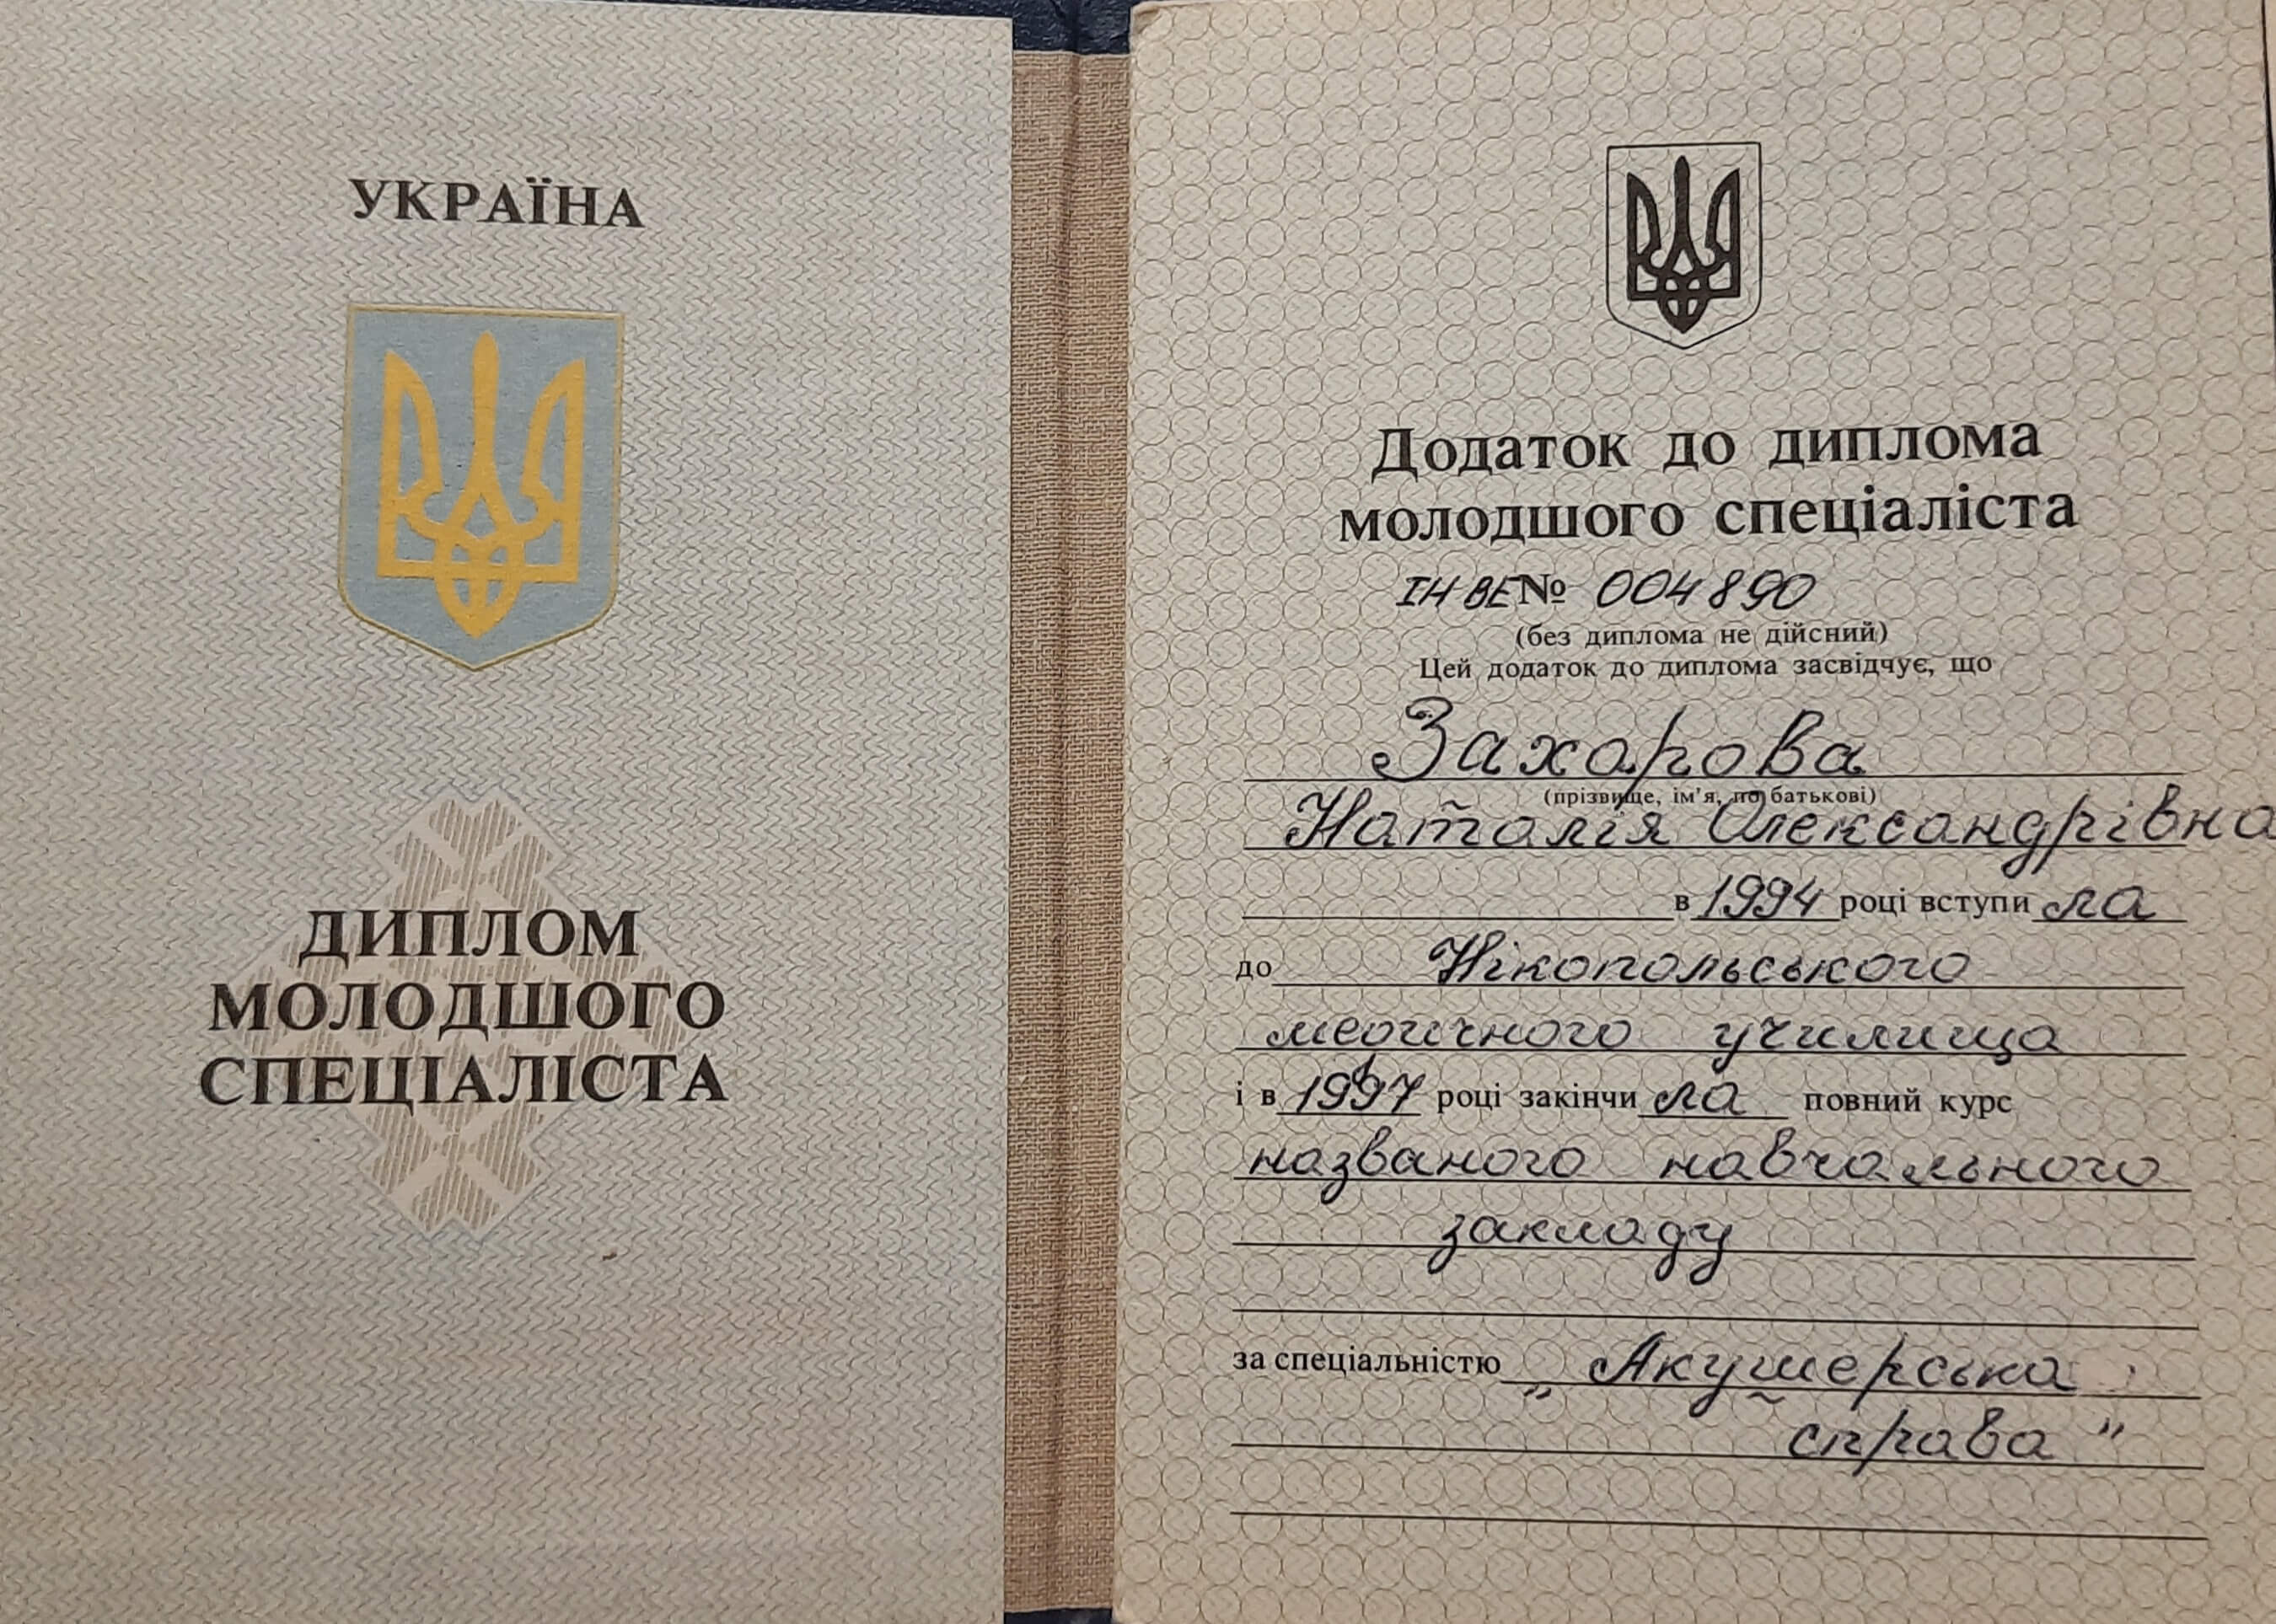 УКРАЇНА
ДИПЛОМ
МОЛОДШОГО
СПЕЦІАЛІСТА
Додаток до диплома
молодшого спеціаліста
ІН ВЕ № 004890
(без диплома не дійсний)
Цей додаток до диплома засвідчує, що
Захарова
(прізвище, ім'я, по батькові)
Наталія Олександрівна
в 1994 році вступила
до Нікопольського
медичного училища
і в 1997 році закінчила повний курс
названого навчального
закладу
за спеціальністю „Акушерська
справа"